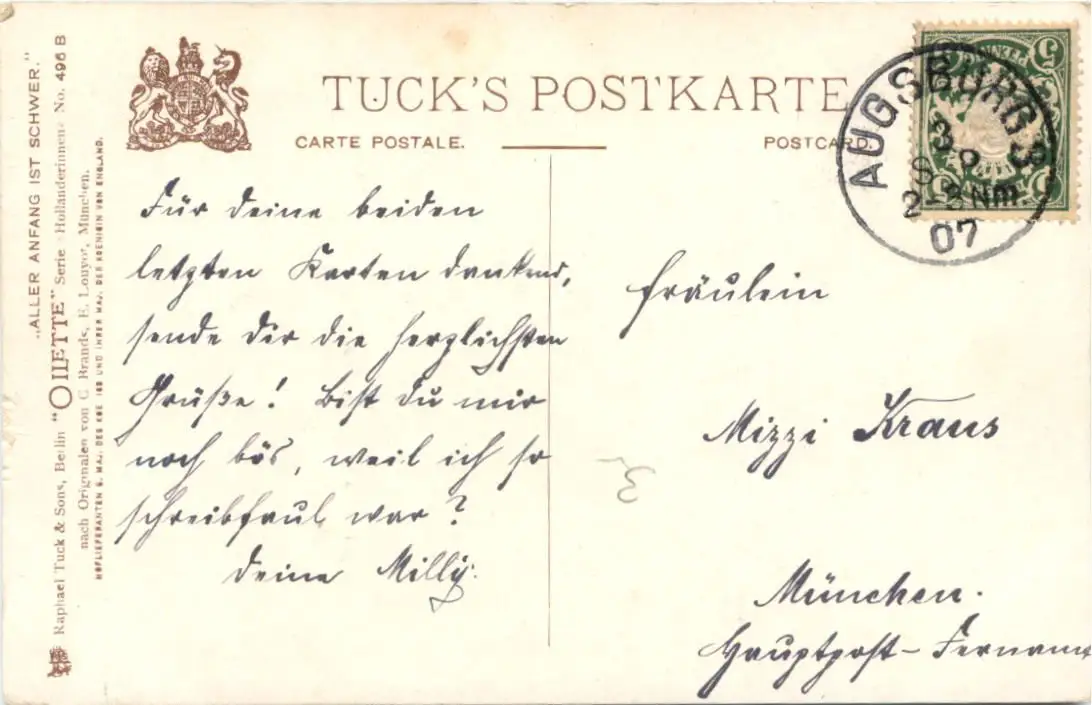 „ALLER ANFANG IST SCHWER."
Raphael Tuck & Sons, Berlin "OILETTE" Serie Holländerinnen No. 496 B
nach Originalen von C. Brands, E. Louyot, München.
HOFLIEFERANTEN S. MAJ. DES KGS UND IHRER MAJ. DER KOENIGIN VON ENGLAND.
TUCK'S POSTKARTE
CARTE POSTALE. POSTCARD.
5
PFENNIG
AUGSBURG
Nm.
07
Für deine beiden
letzten Karten dankend,
sende Dir die herzlichsten
Grüße! Bist Du mir
noch bös, weil ich so
schreibfaul war?
Deine Milly.
Fräulein
Mizzi Kraus
München.
Hauptpost-